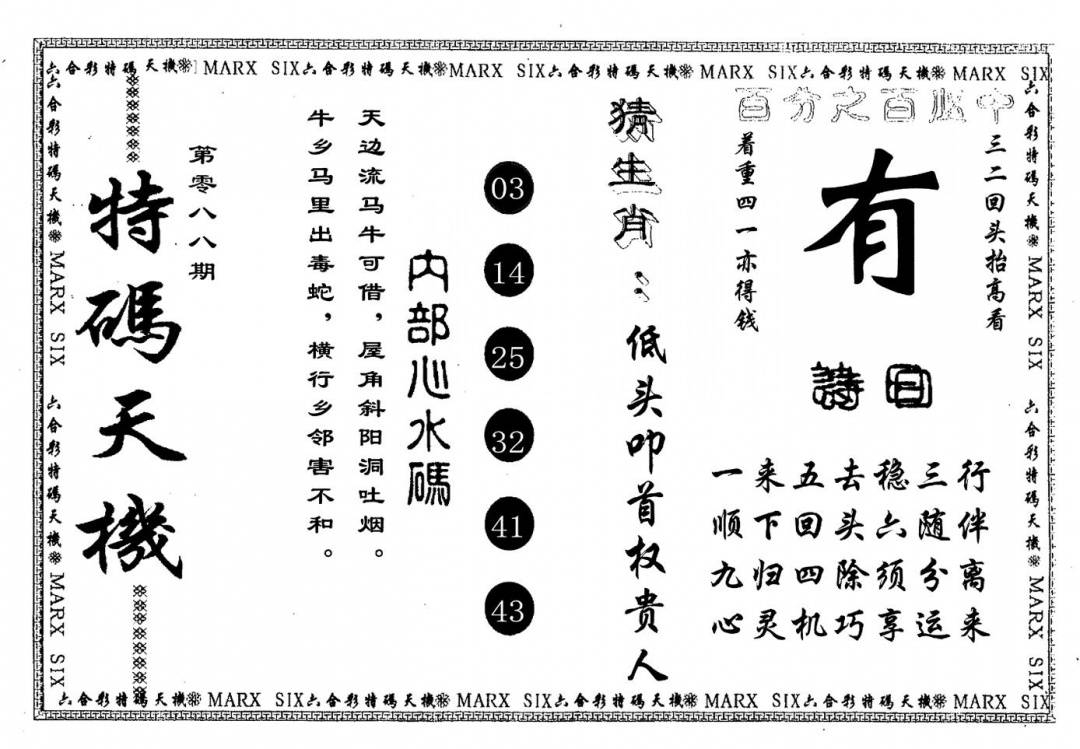 六合彩特碼天機 MARX SIX六合彩特碼天機MARX SIX六合彩特碼天機 MARX SIX六合彩特碼天機 MARX SIX
六合彩特碼天機 MARX SIX 六合彩特碼天機 MARX SIX
特碼天機
第零八八期
牛乡马里出毒蛇，横行乡邻害不和。
天边流马牛可借，屋角斜阳洞吐烟。
内部心水碼
03
14
25
32
41
43
猜生肖：低头叩首权贵人
百分之百必中
着重四一亦得钱
有
三二回头抬高看
詩曰
一来五去稳三行
顺下回头六随伴
九归四除须分离
心灵机巧享运来
六合彩特碼天機 MARX SIX 六合彩特碼天機 MARX SIX
六合彩特碼天機 MARX SIX六合彩特碼天機 MARX SIX六合彩特碼天機 MARX SIX六合彩特碼天機 MARX SIX